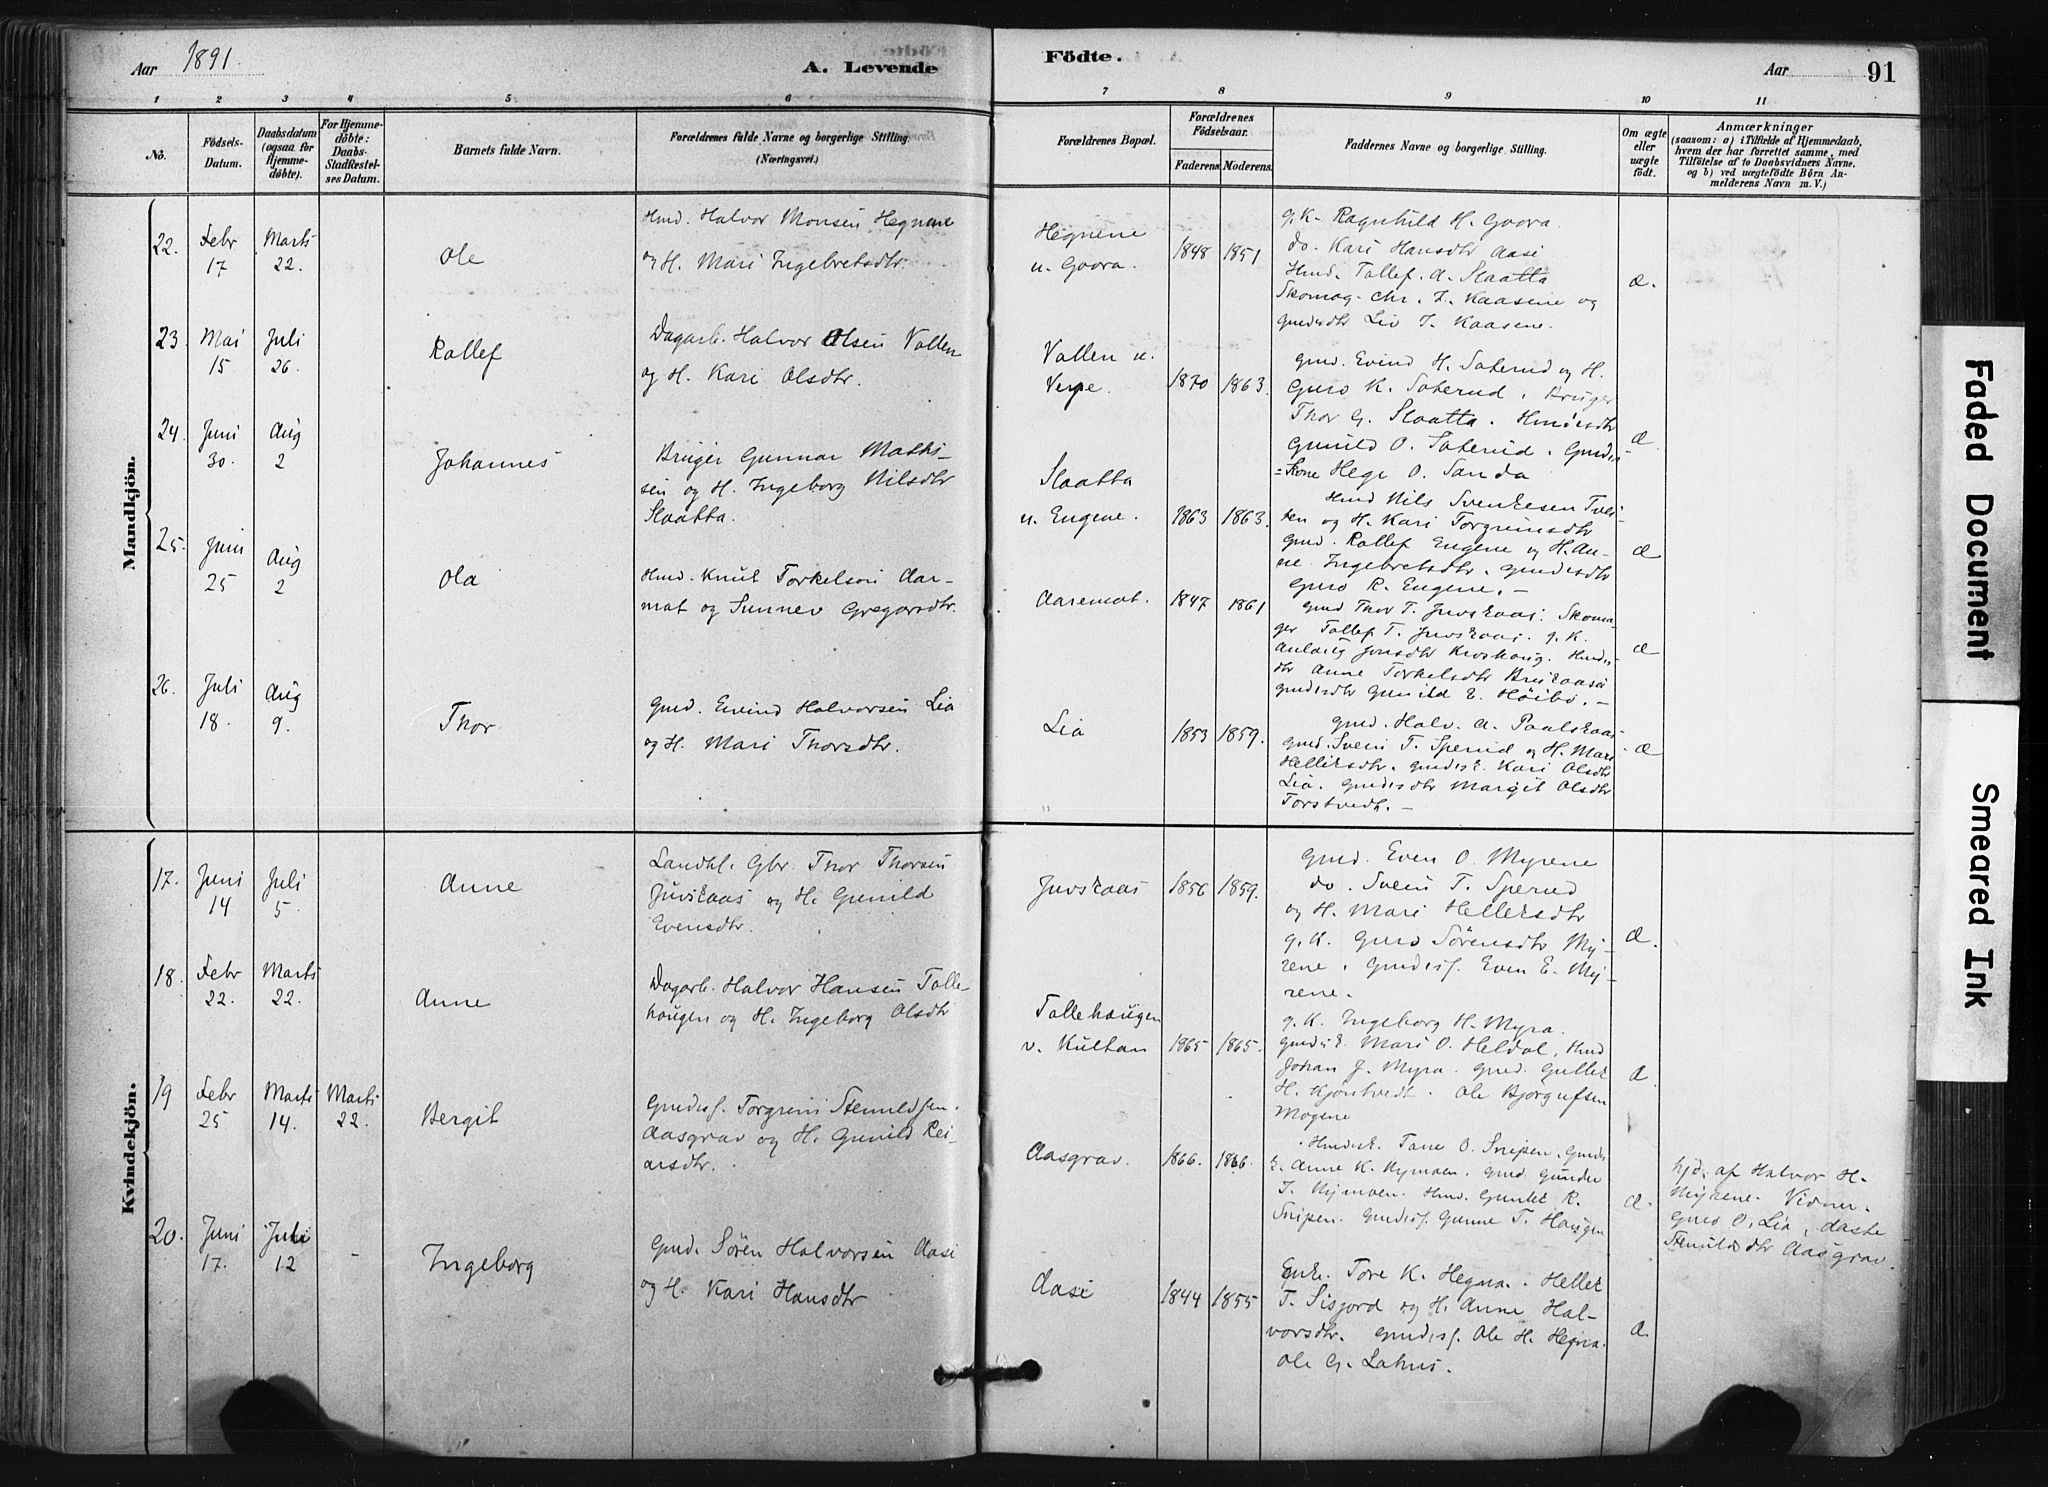 Aar 1891.
A. Levende
Födte.
Aar
91
1 2 3 4 5 6
7 8 9 10 11
No.
Födsels-
Datum.
Daabsdatum
(ogsaa for
Hjemme-
döbte).
For Hjemme-
döbte:
Daabs-
Stadfæstel-
ses Datum.
Barnets fulde Navn.
Forældrenes fulde Navne og borgerlige Stilling.
(Næringsvei.)
Forældrenes Bopæl.
Forældrenes
Födselsaar.
Faderens Moderens.
Faddernes Navne og borgerlige Stilling.
Om ægte
eller
uægte
födt.
Anmærkninger
(saasom: a) i Tilfælde af Hjemmedaab,
hvem der har forrettet samme, med
Tilföielse af to Daabsvidners Navne,
og b) ved uægtefödte Börn An-
melderens Navn m. V.)
Mandkjön.
22.
Febr
17
Marts
22.
Ole
Hmd. Halvor Monsen Hegnene
og H. Mari Ingebretsdtr.
Hegnene
u. Goora.
1848 1851
g.K. Ragnhild H. Goora.
do. Kari Hansdtr Aasi
Hmd. Tallef. A. Slaatta
Skomag. Chr. J. Kaasene og
gmdsdtr Liv J. Kaasene.
Æ.
23.
Mai
15
Juli
26.
Rollef
Dagarb. Halvor Olsen Vallen
og H. Kari Olsdtr.
Vallen u.
Verpe.
1870 1863.
gmd. Evind H. Saterud og H.
Guro K. Saterud. Bruger
Thor G. Slaatta. Hmdsdtr
Gunild O. Saterud. Gmds-
=Kone Hege O. Sanda
Æ
24.
Juni
30.
Aug
2
Johannes
Bruger Gunnar Mathi-
sen og H. Ingeborg Nilsdtr
Slaatta.
Slaatta
u. Eugene.
1863 1863.
Hmd Nils Svenkesen Tvei-
ten og H. Kari Torgrimsdtr
gmd. Rollef Eugene og H. An-
ne Ingebretsdtr. gmdsdtr
Guro R. Eugene.-
Æ
25.
Juni
25
Aug
2
Ola
Hmd. Knut Torkelsen Aar-
mot og Sunnev Gregarsdtr.
Aaremot.
1847 1861
gmd Thor T. Juvskaas. Skoma-
ger Tallef T. Juvskaas. g.K.
Anlaug Jonsdtr Kroshaug. Hmds-
dtr Anne Torkelsdtr Bruskaasa
gmdsdtr Gunild E. Höibö.-
Æ
26.
Juli
18.
Aug
9.
Thor
Gmd. Eivind Halvorsen Lia
og H. Mari Thorsdtr.
Lia
1853 1859.
gmd. Halv. A. Paalskaas
gmd. Svein T. Sperud og H. Mari
Helleksdtr. gmdsk. Kari Olsdtr
Lia. gmdsdtr Margit Olsdtr
Torstvedt.-
Æ
Kvindekjön.
17.
Juni
14
Juli
5.
Anne
Landhl. Gbr. Thor Thorsen
Juvskaas og H. Gunild
Evensdtr.
Juvskaas
1856 1859.
Gmd. Even O. Myrene
do. Svein T. Sperud
og H. Mari Helleksdtr
g.K. Guro Sörensdtr My-
rene. gmdss. Even E. My-
rene.
Æ.
18.
Febr
22.
Marts
22.
Anne
Dagarb. Halvor Hansen Talle-
haugen og H. Ingeborg Olsdtr
Tallehaugen
v. Kultan
1865 1865.
g.K. Ingeborg H. Myra.
gmdsk. Mari O. Heldal, Hmd
Johan J. Myra. gmd. Gullek
H. Kjörstvedt. Ole Bjorgufsen
Mogene
Æ.
19
Febr
25
Marts
14.
Marts
22.
Bergit
Gmdss. Torgrim Stenuldsen.
Aasgrav og H. Gunild Rei-
arsdtr.
Aasgrav.
1866. 1866.
Hmdsk. Tone O. Snipen. Gmds
k. Anne K. Nymoen. gmd Gunder
J. Nymoen. Hmd. Gunlek R.
Snipen. Gmdss. Gunne T. Haugen
Æ.
hjd. af Halvor H.
Myrene. Vidner.
Guro O. Lia, Aaste
Stenuldsdtr Aasgrav.
20.
Juni
17.
Juli
12
-
Ingeborg
Gmd. Sören Halvorsen Aasi
og H. Kari Hansdtr
Aasi
1844 1855
Enk. Tore K. Hegna. Hellek
T. Sisjord og H. Anne Hal-
vorsdtr. gmdss. Ole H. Hegna.
Ole G. Lahus.
Æ.
Faded Document
Smeared Ink